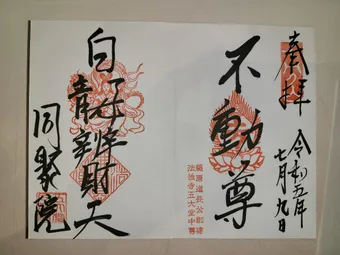 奉拝
令和五年
七月九日
不動尊
藤原道長公創建
法性寺五大堂中尊
白龍弁財天
同聚院